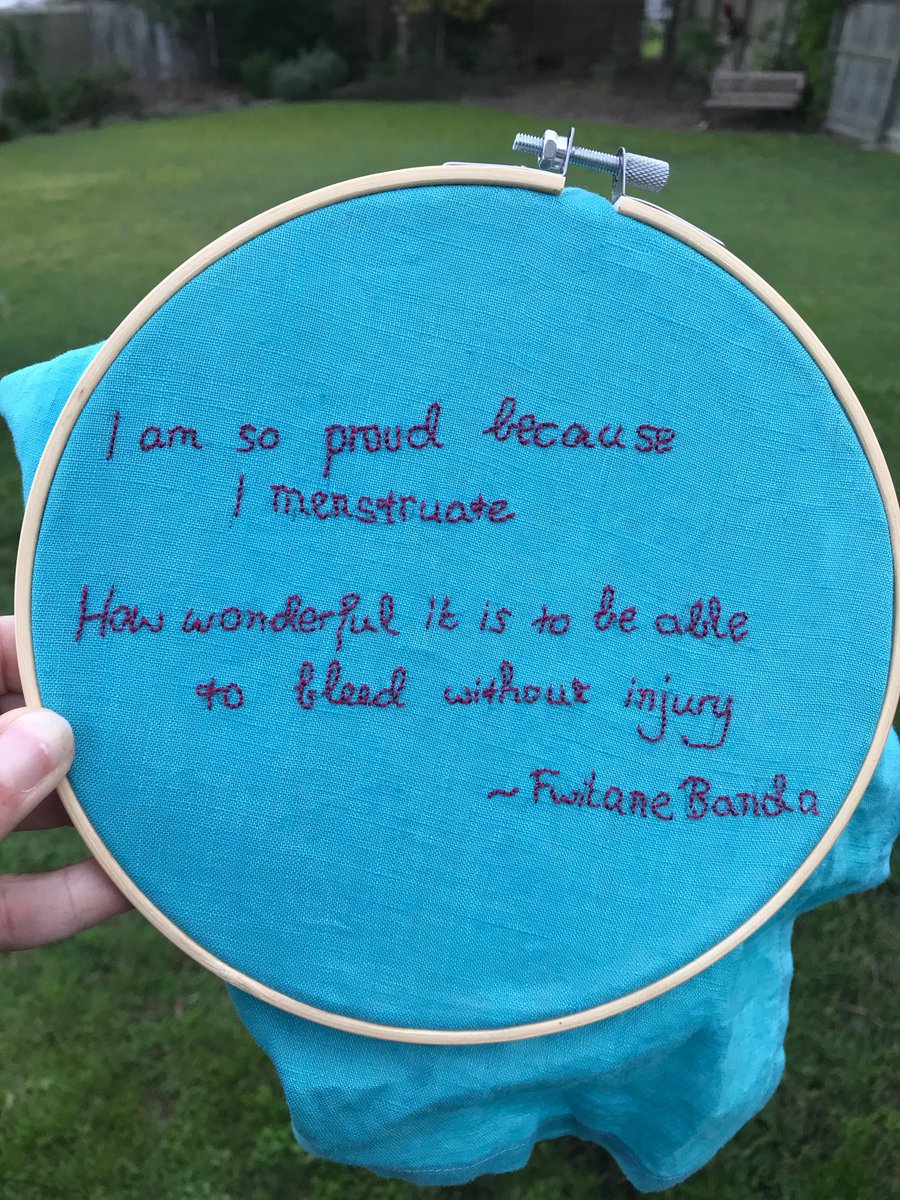 I am so proud because
I menstruate
How wonderful it is to be able
to bleed without injury
~Fwilane Banda